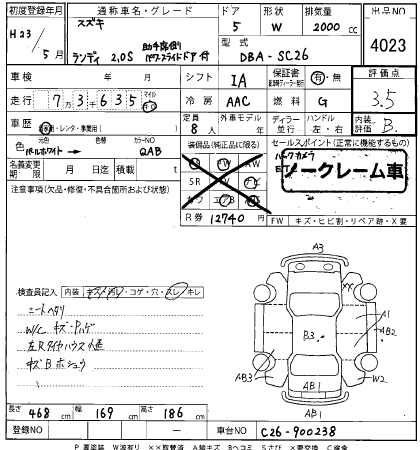 初度登録年月 通称車名・グレード ドア 形状 排気量 出品NO
スズキ
H23/5月 ランディ 2.0S 助手席側パワースライドドア付 5 W 2000cc 4023
型式 DBA-SC26
車検 年 月 シフト IA 保証書 有・無 評価点
走行 73635 マイル 冷房 AAC 燃料 G 3.5
車歴 自家用・レンタ・事業用( ) 定員 8人 外車モデル 年 ディーラー 並行 ハンドル 左・右 内装評価 B.
色 元色 パールホワイト → 色替 カラーNO QAB
装備品(純正品に限る) セールスポイント(正常に機能するもの)
名義変更期限 月 日迄 積載 t
SR
バックカメラ
ノークレーム車
注意事項(欠品・修復・不具合箇所および状態)
R券 12740円
FW キズ・ヒビ割・リペア跡・X要
A3
検査員記入 内装 キズ・汚レ・コゲ・穴・スレ・キレ
シートヘタリ
W/C キズ・ハゲ
左Rタイヤハウス小凹
キズBホシュウ
A1
B3
A2
AB3
AB1
W2
AB1
長さ 468cm 幅 169cm 高さ 186cm
登録NO ― 車台NO C26-900238
P 要塗装 W波有り XX取替済 A線キズ Bヘコミ Sさび X要交換 C腐食